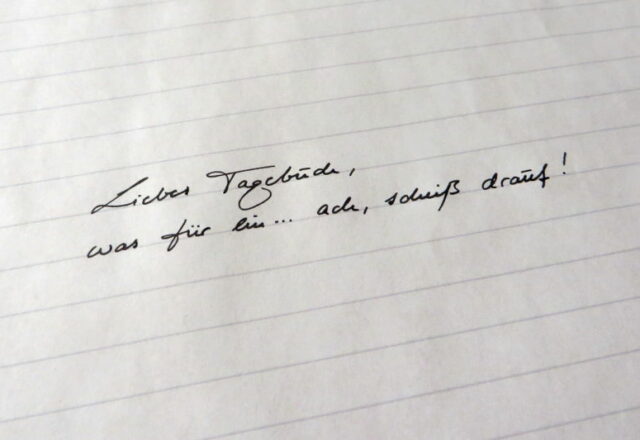 Liebes Tagebuch,
was für ein... ach, scheiß drauf!